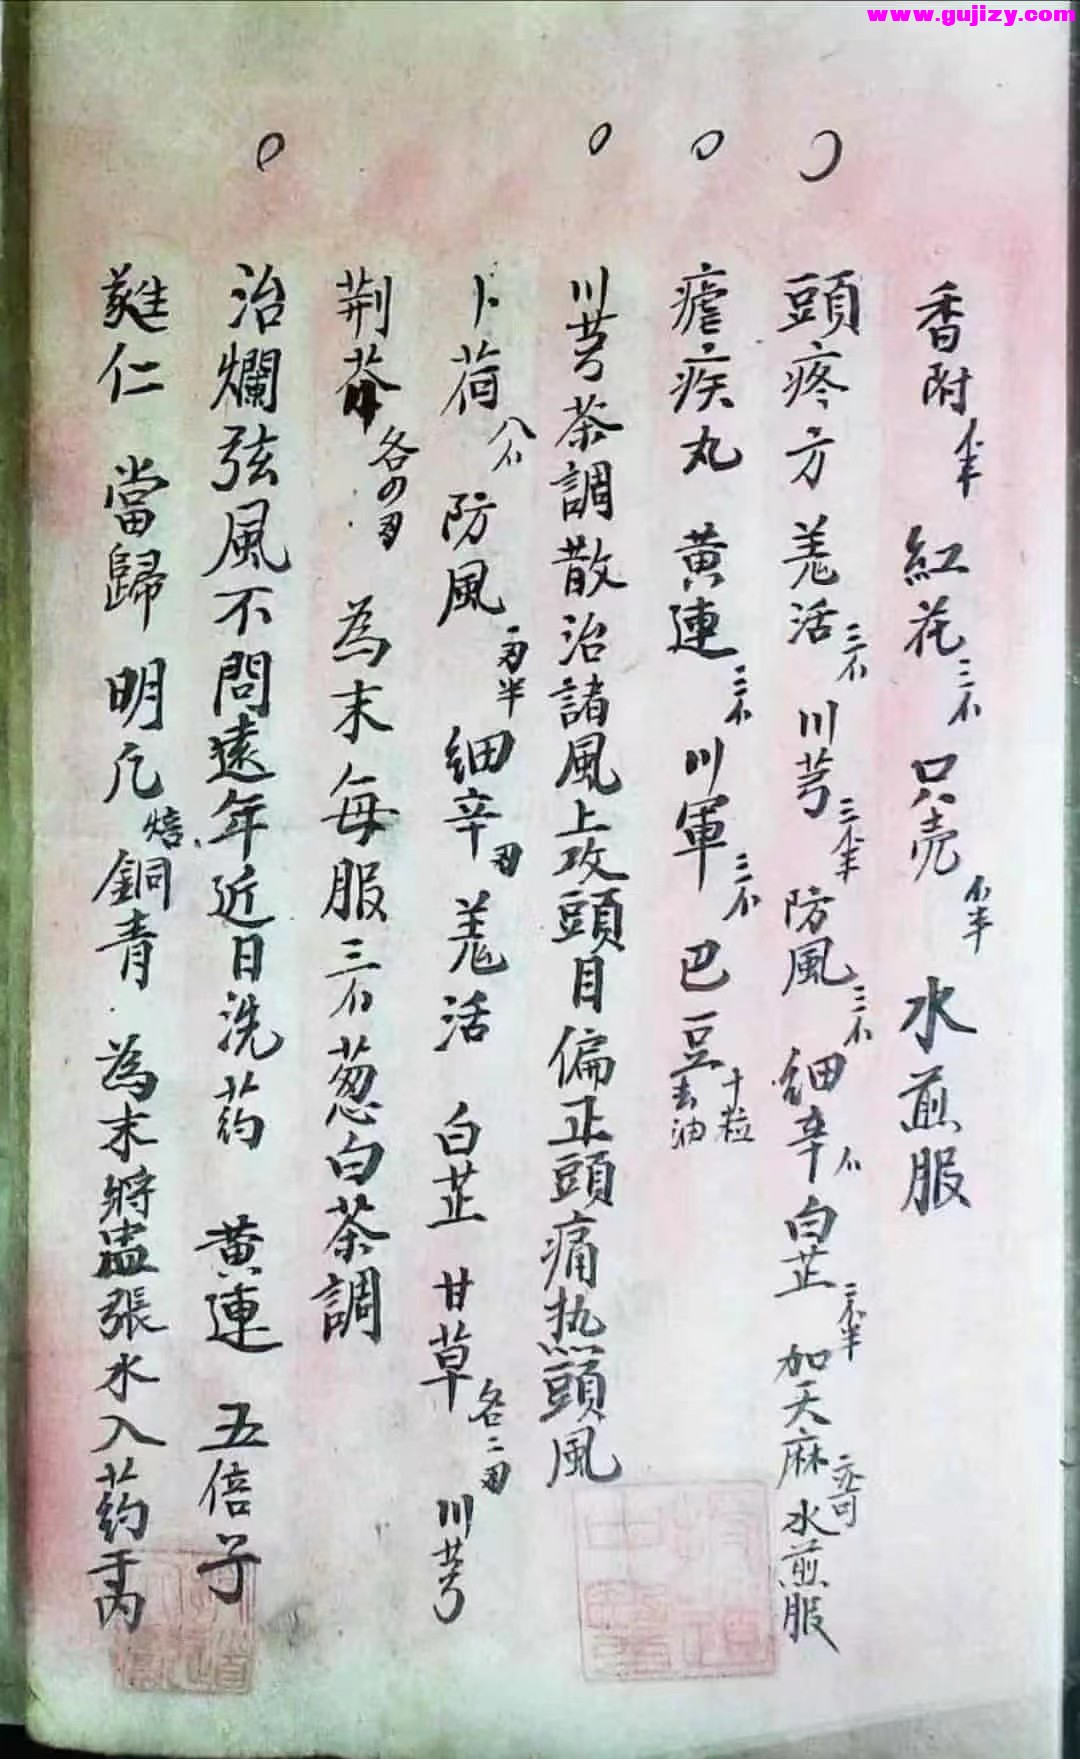 www.gujizy.com
香附 半 紅花 三 只壳 半 水煎服
頭疼方 羌活 三 川芎 三 半 防風 三 細辛 白芷 三 半 加天麻 亦可 水煎服
瘧疾丸 黄連 三 川軍 三 巴豆 十粒 去油
川芎茶調散治諸風上攻頭目偏正頭痛热頭風
卜荷 八 防風 半 細辛 羌活 白芷 甘草 各二 川芎
荆芥 各 為末每服三 葱白茶調
治爛弦風不問遠年近日洗药 黄連 五倍子
蕤仁 當歸 明凡 焙 銅青 為末將盅張水入药于內